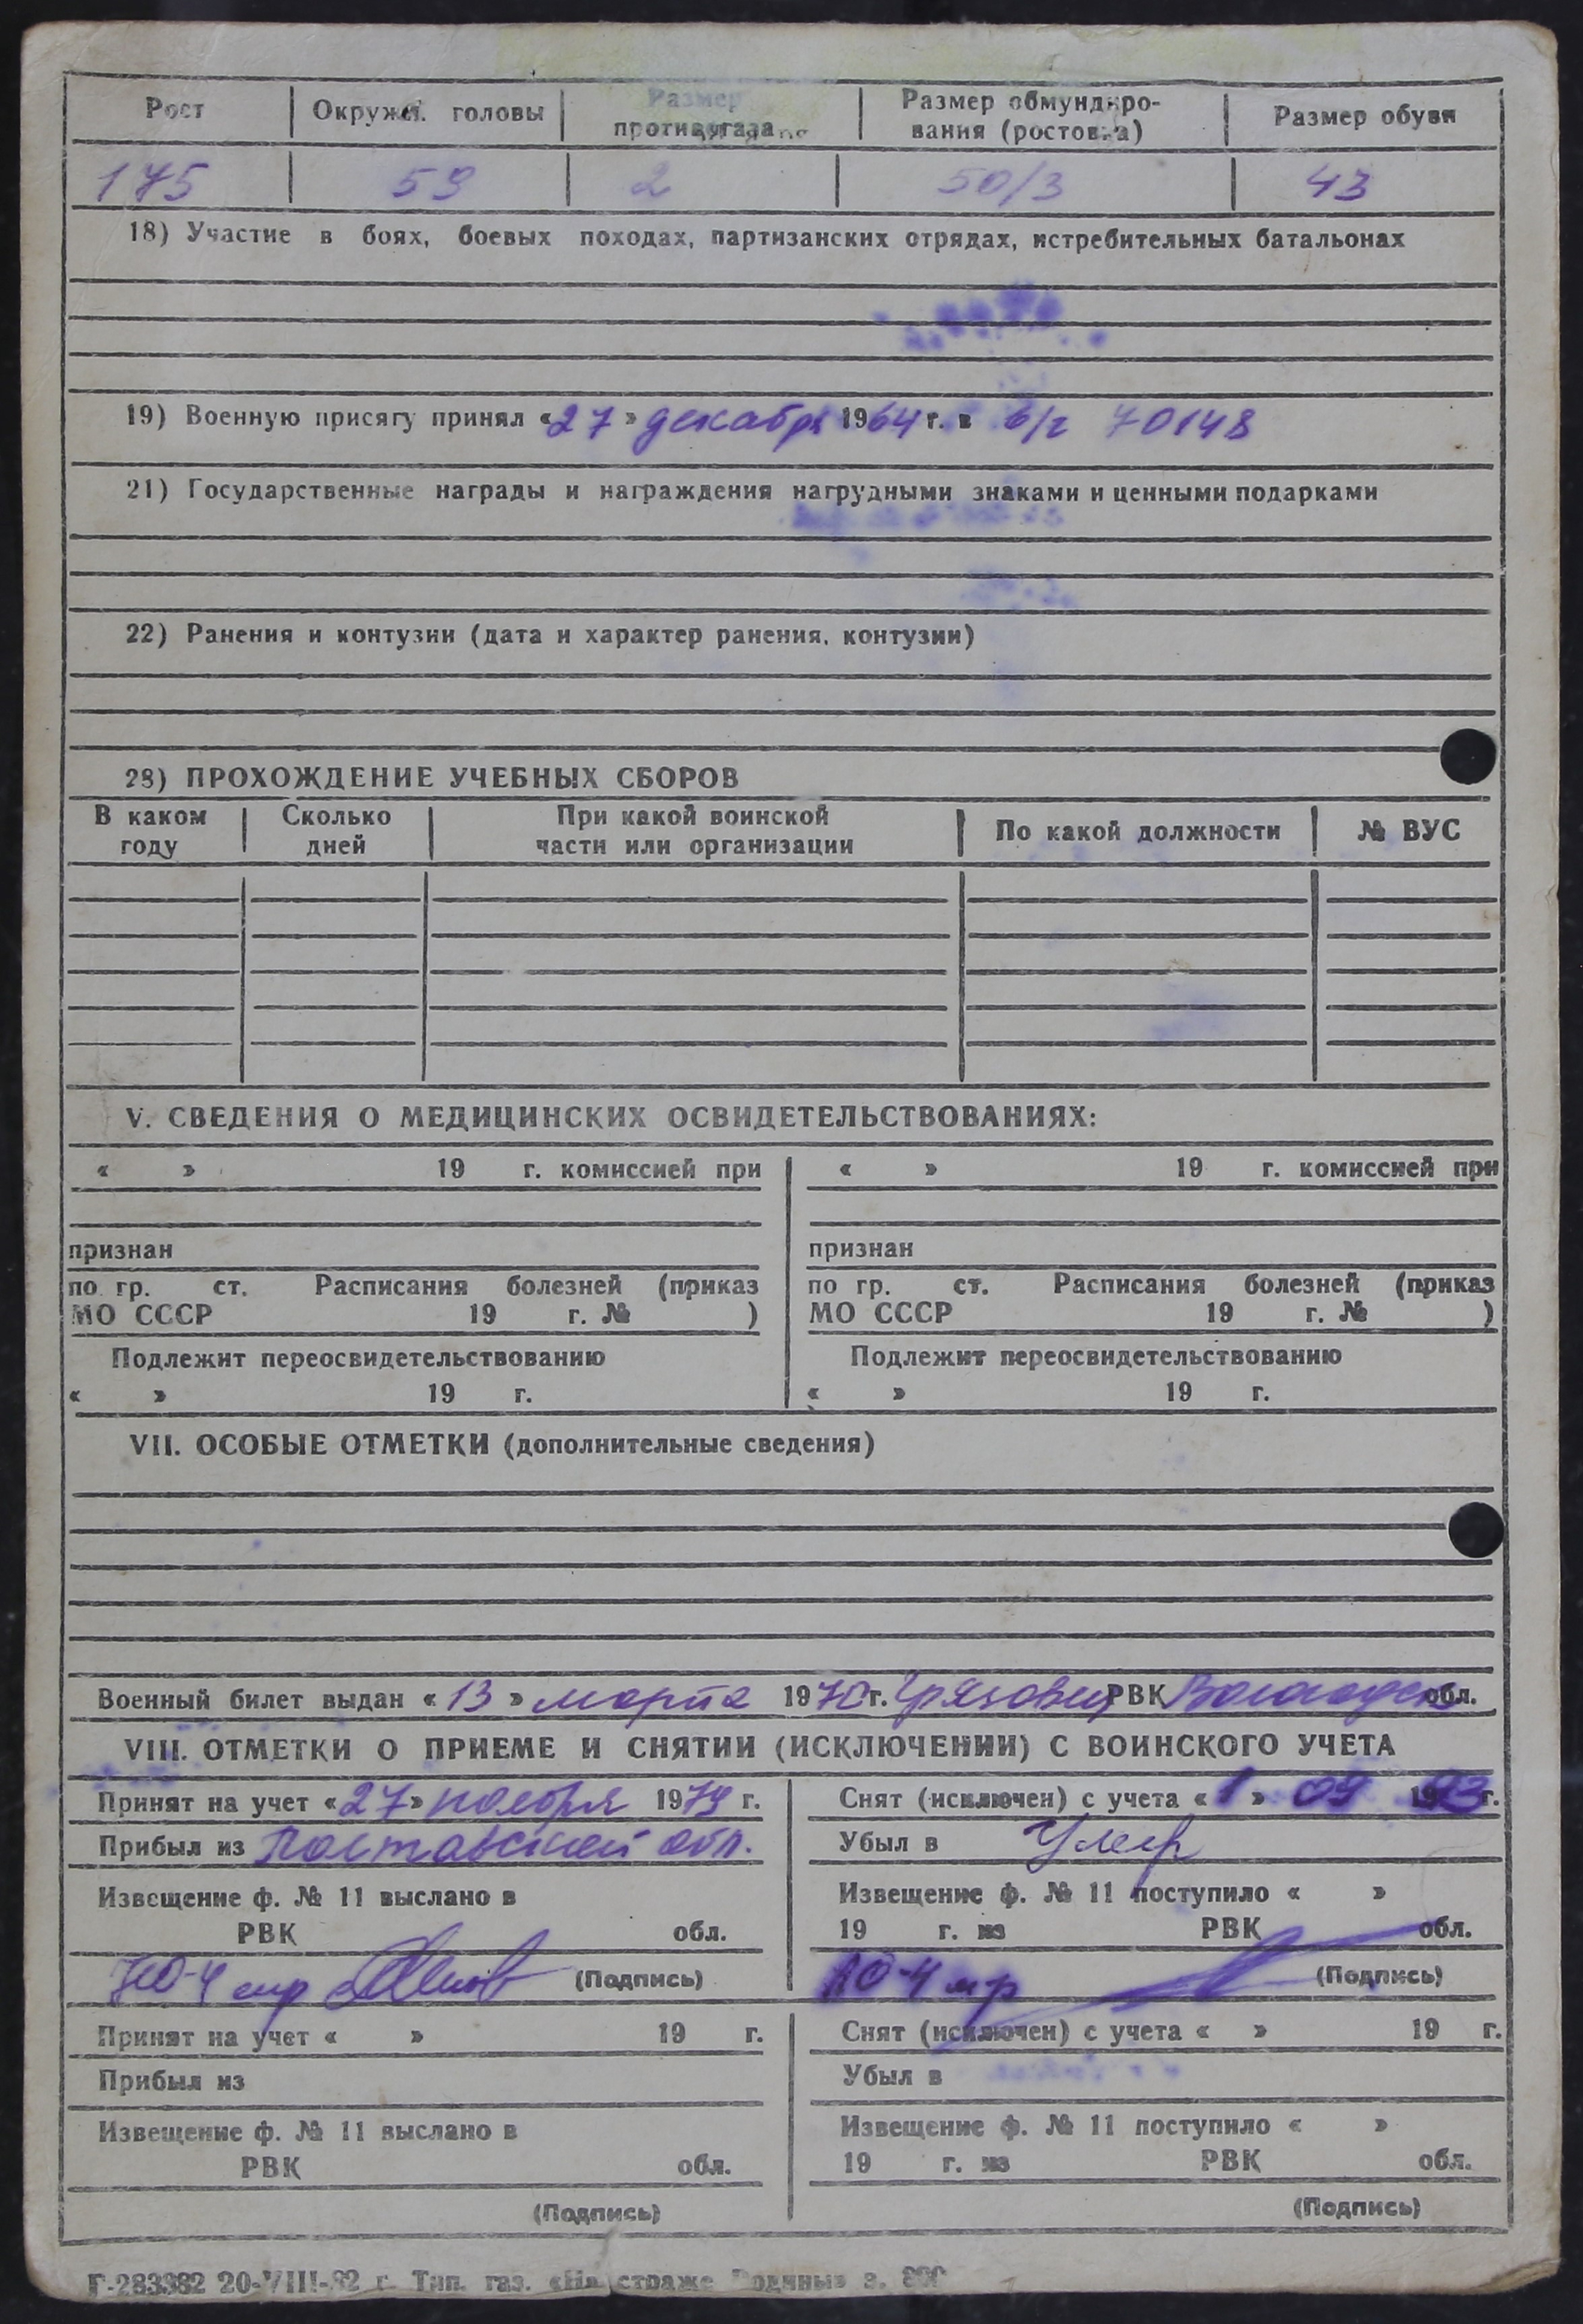 Рост Окружн. головы Размер противогаза Размер обмундиро- Размер обуви
вания (ростовка)
175 59 2 50/3 43
18) Участие в боях, боевых походах, партизанских отрядах, истребительных батальонах
19) Военную присягу принял «27» декабря 1964 г. в в/ч 70148
21) Государственные награды и награждения нагрудными знаками и ценными подарками
22) Ранения и контузии (дата и характер ранения, контузии)
23) ПРОХОЖДЕНИЕ УЧЕБНЫХ СБОРОВ
В каком году Сколько дней При какой воинской части или организации По какой должности № ВУС
V. СВЕДЕНИЯ О МЕДИЦИНСКИХ ОСВИДЕТЕЛЬСТВОВАНИЯХ:
« » 19 г. комиссией при
признан
по гр. ст. Расписания болезней (приказ
МО СССР 19 г. № )
Подлежит переосвидетельствованию
« » 19 г.
« » 19 г. комиссией при
признан
по гр. ст. Расписания болезней (приказ
МО СССР 19 г. № )
Подлежит переосвидетельствованию
« » 19 г.
VII. ОСОБЫЕ ОТМЕТКИ (дополнительные сведения)
Военный билет выдан «13» марта 1970 г. Грязовец РВК Вологодск обл.
VIII. ОТМЕТКИ О ПРИЕМЕ И СНЯТИИ (ИСКЛЮЧЕНИИ) С ВОИНСКОГО УЧЕТА
Принят на учет «27» ноября 1979 г.
Прибыл из Полтавской обл.
Извещение ф. № 11 выслано в
РВК обл.
НО-4 м-р (Подпись)
Снят (исключен) с учета «1» 09 1993 г.
Убыл в Умер
Извещение ф. № 11 поступило « »
19 г. из РВК обл.
НО-4 м-р (Подпись)
Принят на учет « » 19 г.
Прибыл из
Извещение ф. № 11 выслано в
РВК обл.
(Подпись)
Снят (исключен) с учета « » 19 г.
Убыл в
Извещение ф. № 11 поступило « »
19 г. из РВК обл.
(Подпись)
Г-283382 20-VIII-82 г. Тип. газ. «На страже Родины» з.